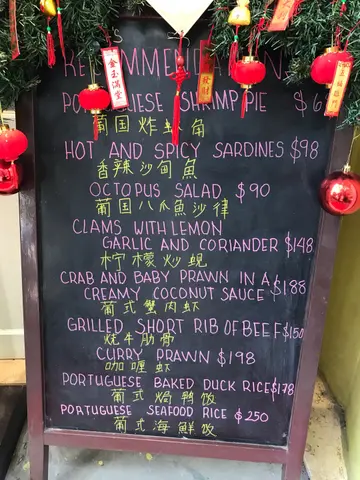 RECOMMENDATION
金玉滿堂
PORTUGUESE SHRIMP PIE $6
葡国炸虾角
HOT AND SPICY SARDINES $98
香辣沙甸魚
OCTOPUS SALAD $90
葡国八爪魚沙律
CLAMS WITH LEMON
GARLIC AND CORIANDER $148
柠檬炒蜆
CRAB AND BABY PRAWN IN A
CREAMY COCONUT SAUCE $188
葡式蟹肉虾
GRILLED SHORT RIB OF BEEF $150
烧牛肋骨
CURRY PRAWN $198
咖喱虾
PORTUGUESE BAKED DUCK RICE $178
葡式焗鸭饭
PORTUGUESE SEAFOOD RICE $250
葡式海鮮饭